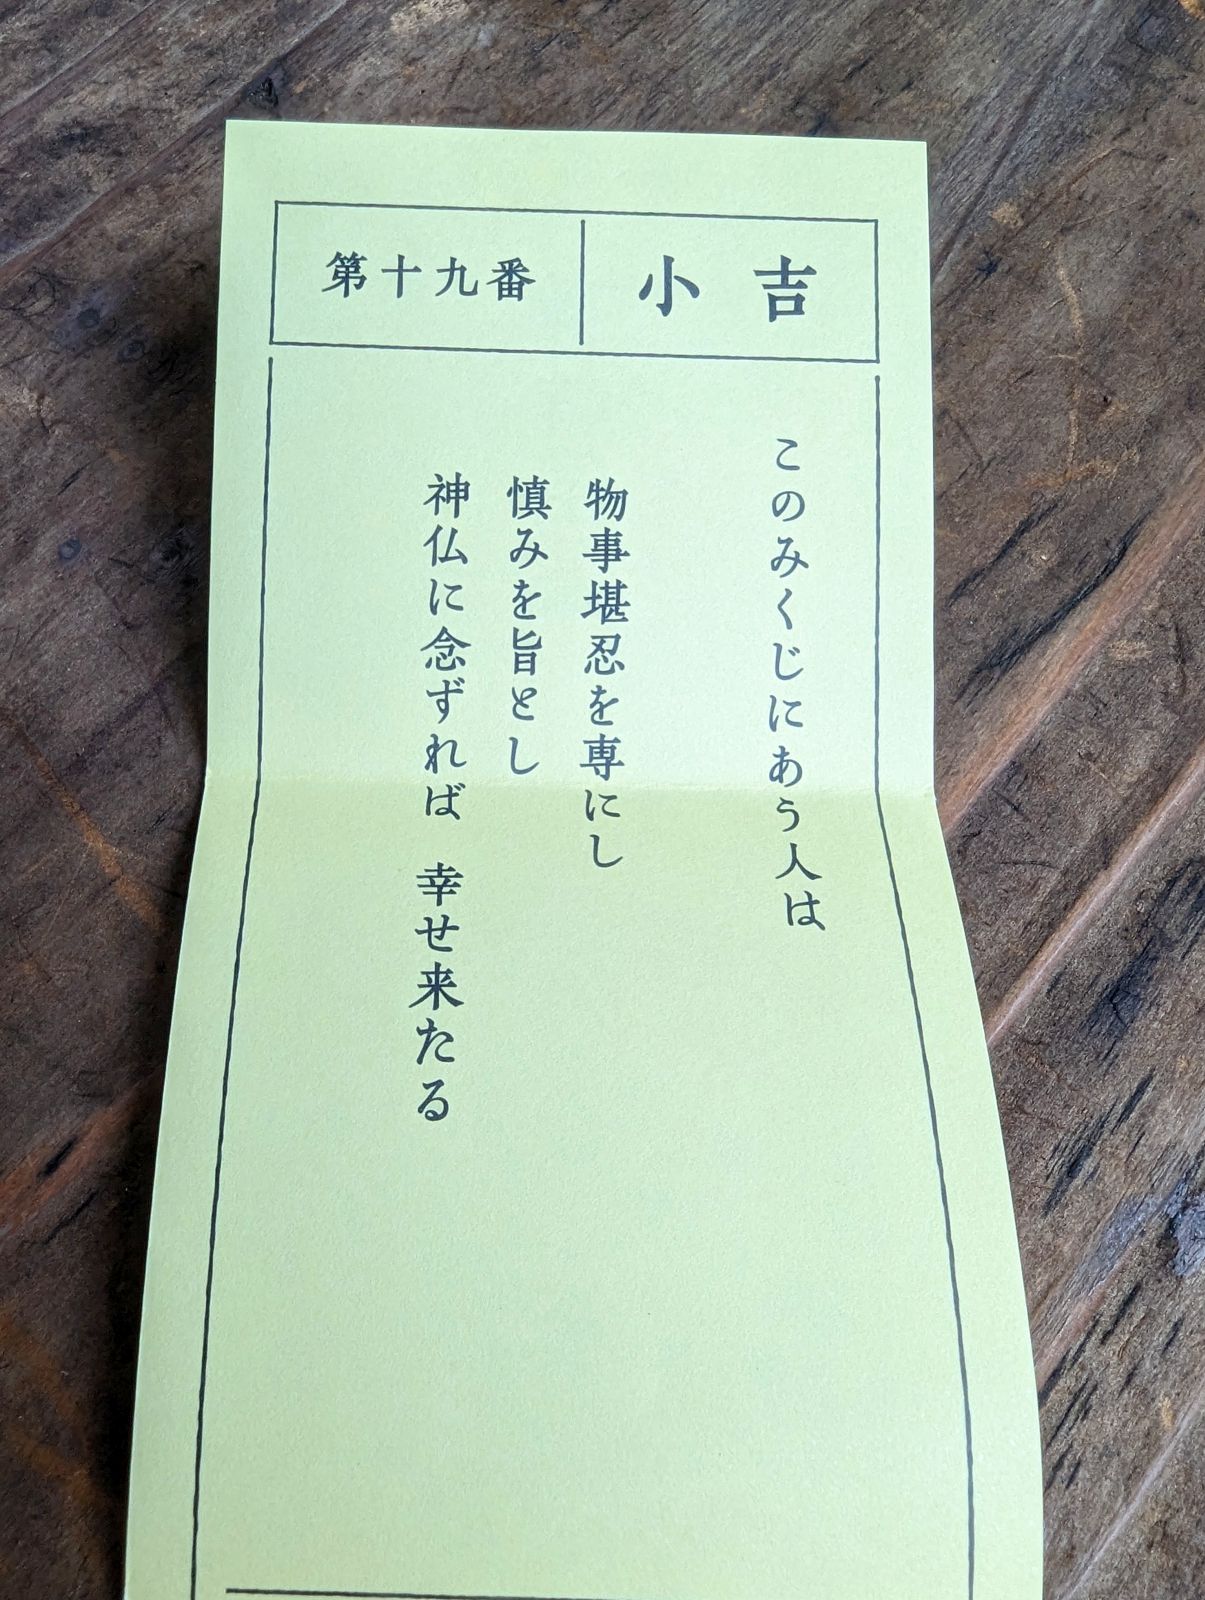 第十九番
小吉
このみくじにあう人は
物事堪忍を専にし
慎みを旨とし
神仏に念ずれば　幸せ来たる